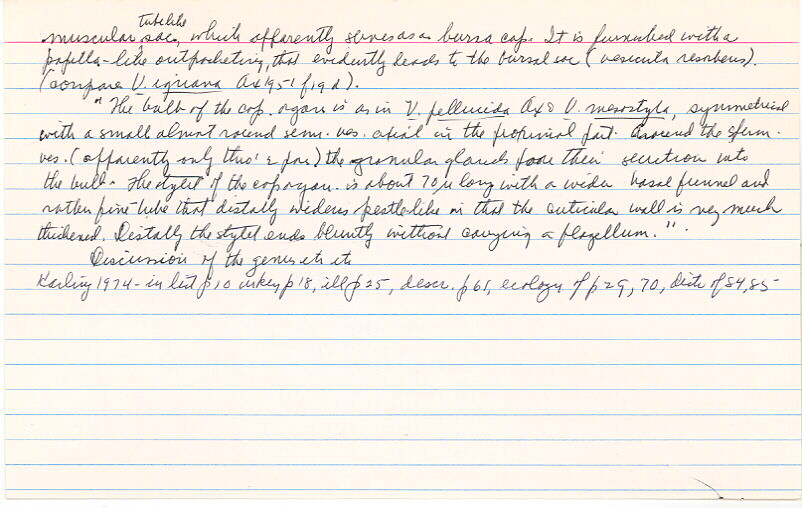 tubelike
muscular sac, which apparently serves as a bursa cop. It is furnished with a
papilla-like outpocketing, that evidently leads to the bursal sac (vesicula resorbens).
(compare V. iguana Ax 1951 fig d).
"The bulb of the cop. organ is as in V. pellucida Ax & V. mesostyla, symmetrical
with a small almost round sem. ves. axial in the proximal part. Around the sperm.
ves. (apparently only thro' a pore) the granular glands pore their secretion into
the bulb. The stylet of the cop organ. is about 70 µ long with a wider basal funnel and
rather fine tube that distally widens pestle-like in that the cuticular wall is very much
thickened. Distally the stylet ends bluntly without carrying a flagellum.".
Discussion of the genus etc etc
Karling 1974 - in list p 10 in key p 18, ill p 25, descr. p 61, ecology of p 29, 70, distr of 84, 85-